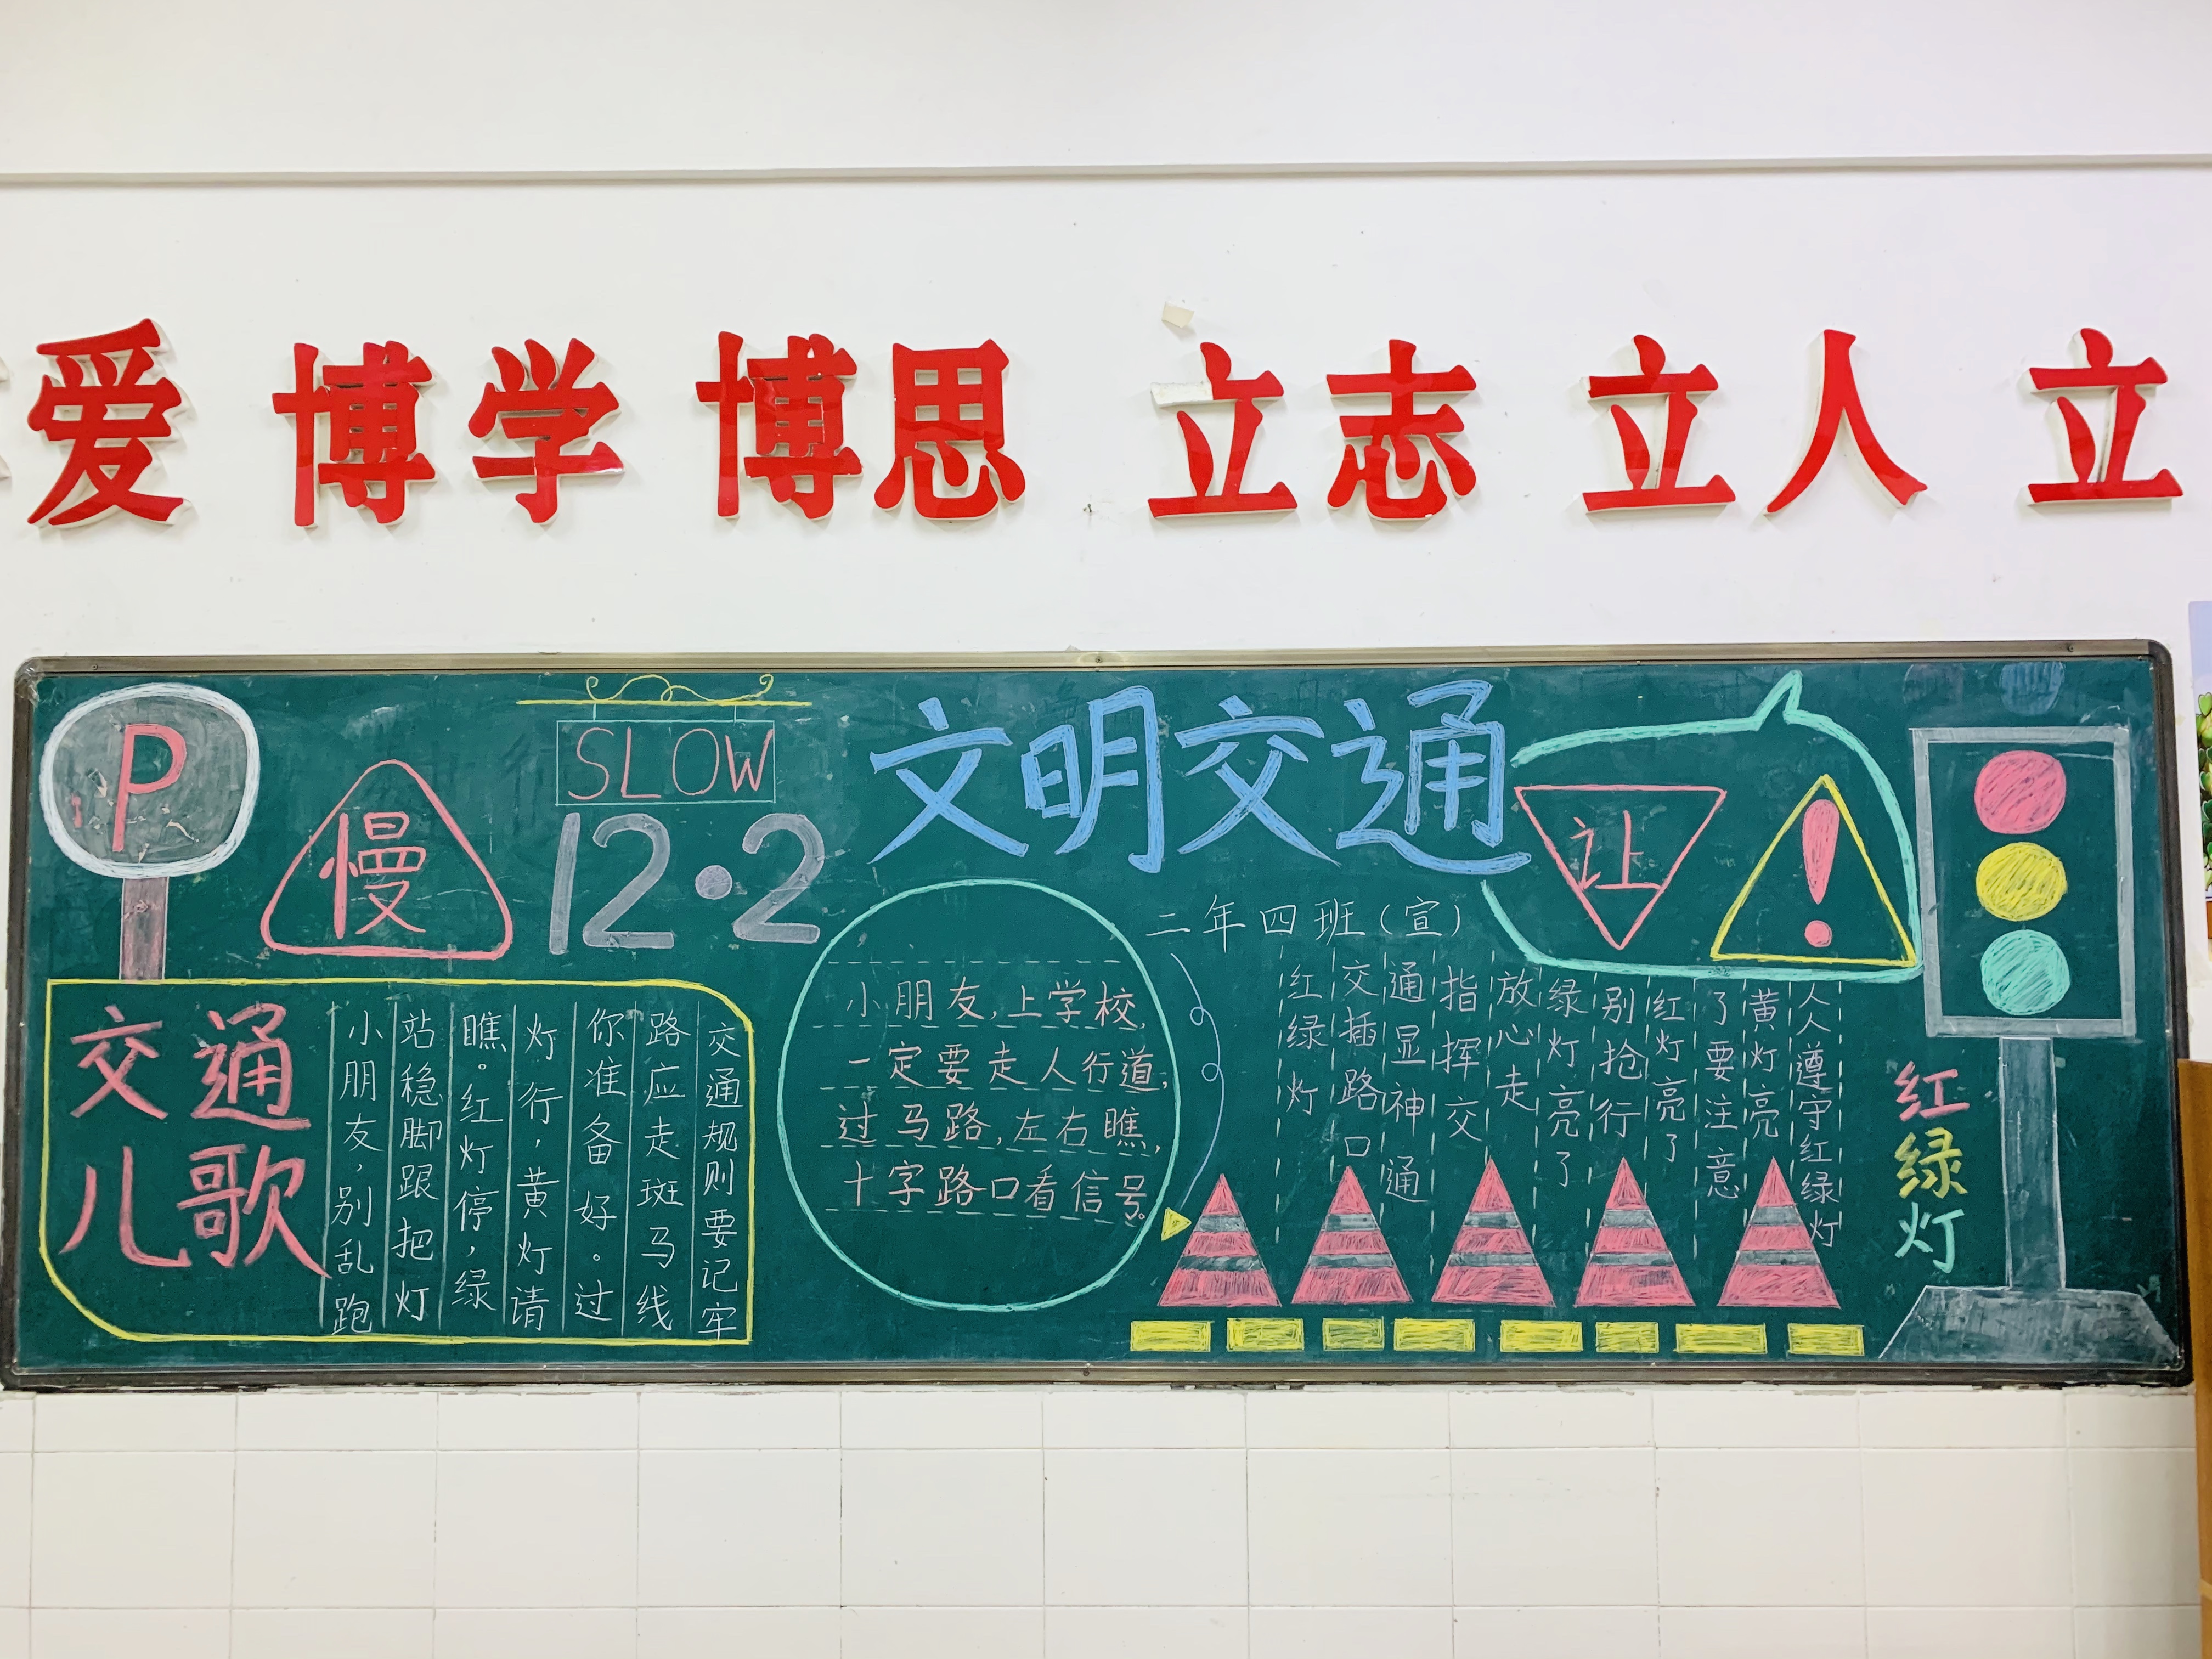 爱 博学 博思 立志 立人 立
P
慢
SLOW
12·2
文明交通
让
!
二年四班(宣)
交通
儿歌
小朋友,别乱跑
站稳脚跟把灯
瞧。红灯停,绿
灯行,黄灯请
你准备好。过
路应走斑马线
交通规则要记牢
小朋友,上学校,
一定要走人行道,
过马路,左右瞧,
十字路口看信号。
红绿灯
交插路口
通显神通
指挥交
放心走
绿灯亮了
别抢行
红灯亮了
了要注意
黄灯亮
人人遵守红绿灯
红
绿
灯